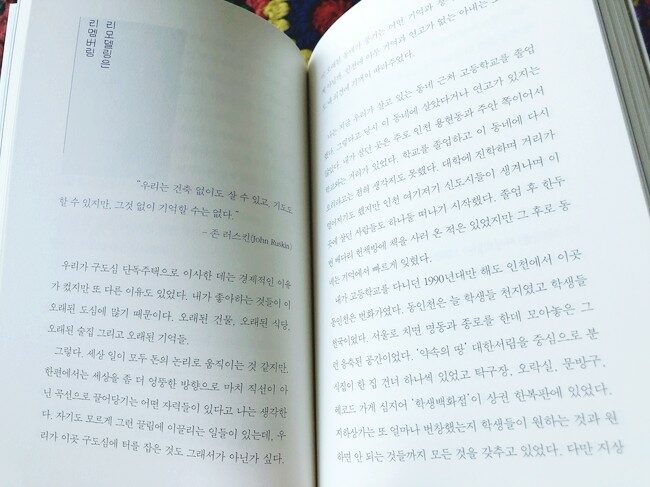 리모델링은
리멤버링
"우리는 건축 없이도 살 수 있고, 기도도
할 수 있지만, 그것 없이 기억할 수는 없다."
– 존 러스킨(John Ruskin)
우리가 구도심 단독주택으로 이사한 데는 경제적인 이유
가 컸지만 또 다른 이유도 있었다. 내가 좋아하는 것들이 이
오래된 도심에 많기 때문이다. 오래된 건물, 오래된 식당,
오래된 술집 그리고 오래된 기억들.
그렇다. 세상 일이 모두 돈의 논리로 움직이는 것 같지만,
한편에서는 세상을 좀 더 엉뚱한 방향으로 마치 직선이 아
닌 곡선으로 끌어당기는 어떤 자력들이 있다고 나는 생각한
다. 자기도 모르게 그런 끌림에 이끌리는 일들이 있는데, 우
리가 이곳 구도심에 터를 잡은 것도 그래서가 아닌가 싶다.
어떤 기억과
아무 기억과 연고가 없는 아내는
나는 지금 우리가 살고 있는 동네 근처 고등학교를 졸업
했다. 그렇다고 당시 이 동네에 살았다거나 연고가 있지는
않았다. 내가 살던 곳은 주로 인천 용현동과 주안 쪽이어서
거리가 있었다. 학교를 졸업하고 이 동네에 다시
오리라고는 전혀 생각지도 못했다. 대학에 진학하며 거리가
멀어지기도 했지만 인천 여기저기 신도시들이 생겨나며 이
곳에 살던 사람들도 하나둘 떠나기 시작했다. 졸업 후 한두
번 배다리 헌책방에 책을 사러 온 적은 있었지만 그 후로 동
네는 기억에서 빠르게 잊혔다.
내가 고등학교를 다니던 1990년대만 해도 인천에서 이곳
동인천은 번화가였다. 동인천은 늘 학생들 천지였고 학생들
천국이었다. 서울로 치면 명동과 종로를 한데 모아놓은 그
런 응축된 공간이었다. '약속의 땅' 대한서림을 중심으로 분
식집이 한 집 건너 하나씩 있었고 탁구장, 오락실, 문방구,
레코드 가게 심지어 '학생백화점'이 상권 한복판에 있었다.
지하상가는 또 얼마나 번창했는지 학생들이 원하는 것과 원
하면 안 되는 것들까지 모든 것을 갖추고 있었다. 다만 지상